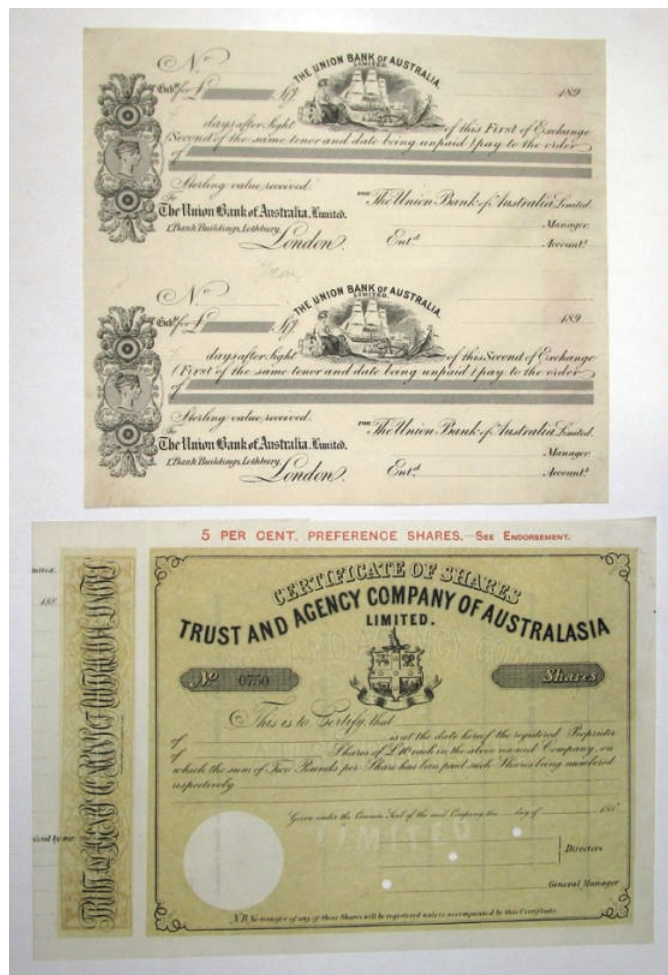 No
THE UNION BANK OF AUSTRALIA.
LIMITED.
Exche for £ 189
days after Sight of this First of Exchange
(Second of the same tenor and date being unpaid) pay to the order
of
Sterling value received.
To
The Union Bank of Australia, Limited.
1, Bank Buildings, Lothbury,
London.
FOR The Union Bank of Australia Limited.
Manager.
Entd Accountt
No
THE UNION BANK OF AUSTRALIA.
LIMITED.
for £ 189
days after Sight of this Second of Exchange
(First of the same tenor and date being unpaid) pay to the order
of
Sterling value received.
To
The Union Bank of Australia, Limited.
1, Bank Buildings, Lothbury,
London.
FOR The Union Bank of Australia Limited.
Manager.
Entd Accountt
5 PER CENT. PREFERENCE SHARES.—SEE ENDORSEMENT.
188
CERTIFICATE OF SHARES
TRUST AND AGENCY COMPANY OF AUSTRALASIA
LIMITED.
No 0750 Shares
This is to Certify that
of is at the date hereof the registered Proprietor
of Shares of £10 each in the above named Company, on
which the sum of Two Pounds per Share has been paid such Shares being numbered
respectively
Given under the Common Seal of the said Company this day of 188
LIMITED
Directors
General Manager
N.B. No transfer of any of these Shares will be registered unless accompanied by this Certificate.